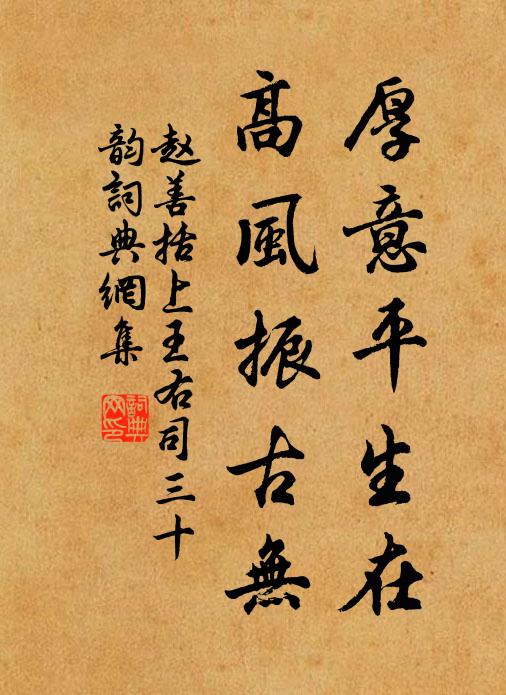 厚意平生在
高風振古無
赵善括上王右司三十
韵詞典網集
詞典
网印